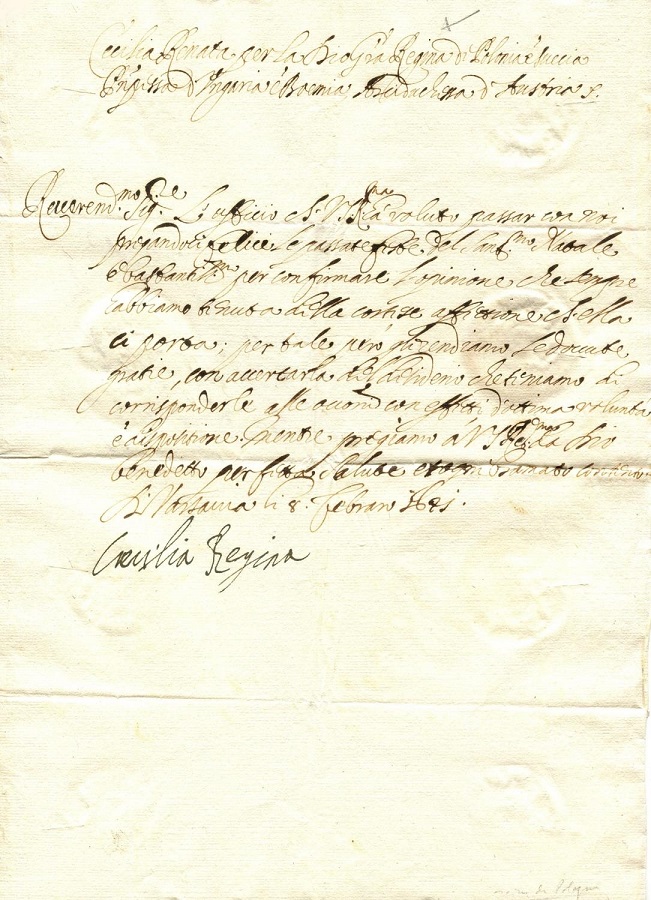 Cecilia Renata per la Dio gra Regina di Polonia e Suecia
Prñpessa d'Ungaria e Boemia, Arciduchessa d'Austria
Reuerend.mo Sig.re L'ufficio ch V. S. R.ma ha voluto passar con noi
pregandoci felici le passate feste del Sant.mo Natale
è bastantiss.mo per confirmare l'opinione che sempre
habbiamo tenuta della cortese affettione ch'ella
ci porta; per tale però gli rendiamo le douute
gratie, con accertarla del desiderio che teniamo di
corrisponderle alle occom con effetti d'ottima voluntà
e dispositione. mentre pregiamo à V. S. Reu.ma da Dio
benedetto perfetta salute et ogni bramato contento.
Di Varsauia li 8. Febraro
Cecilia Regina